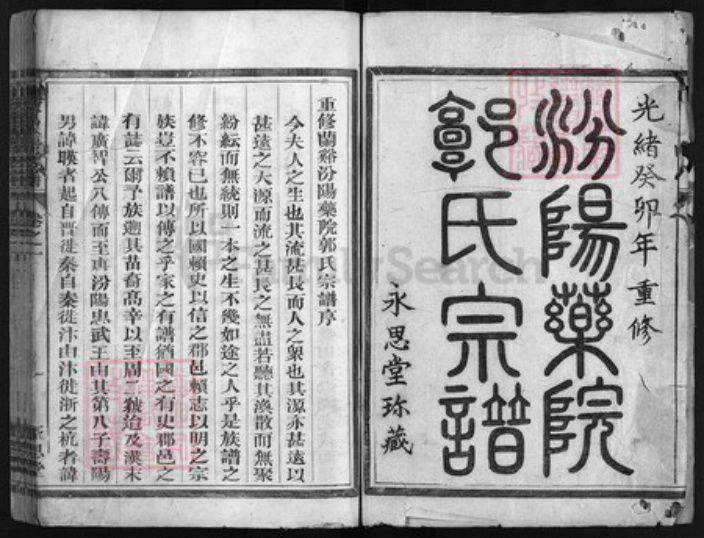 光緒癸卯年重修
汾陽藥院
郭氏宗譜
永思堂珍藏
重修蘭谿汾陽藥院郭氏宗譜序
今夫人之生也其流甚長而人之衆也其源亦甚遠以
甚遠之大源而流之甚長之無盡若聽其渙散而無聚
紛紜而無統則一本之生不幾如途之人乎是族譜之
修不容已也所以國賴史以信之郡邑賴志以明之宗
族豈不賴譜以傳之乎家之有譜猶國之有史郡邑之
有誌云爾予族遡其苗裔高辛以至周二虢迨及漢末
諱廣智公八傳而至唐汾陽忠武王由其第八子壽陽
男諱曖者起自晋徙秦自秦徙汴由汴徙浙之杭者諱
FamilySearch